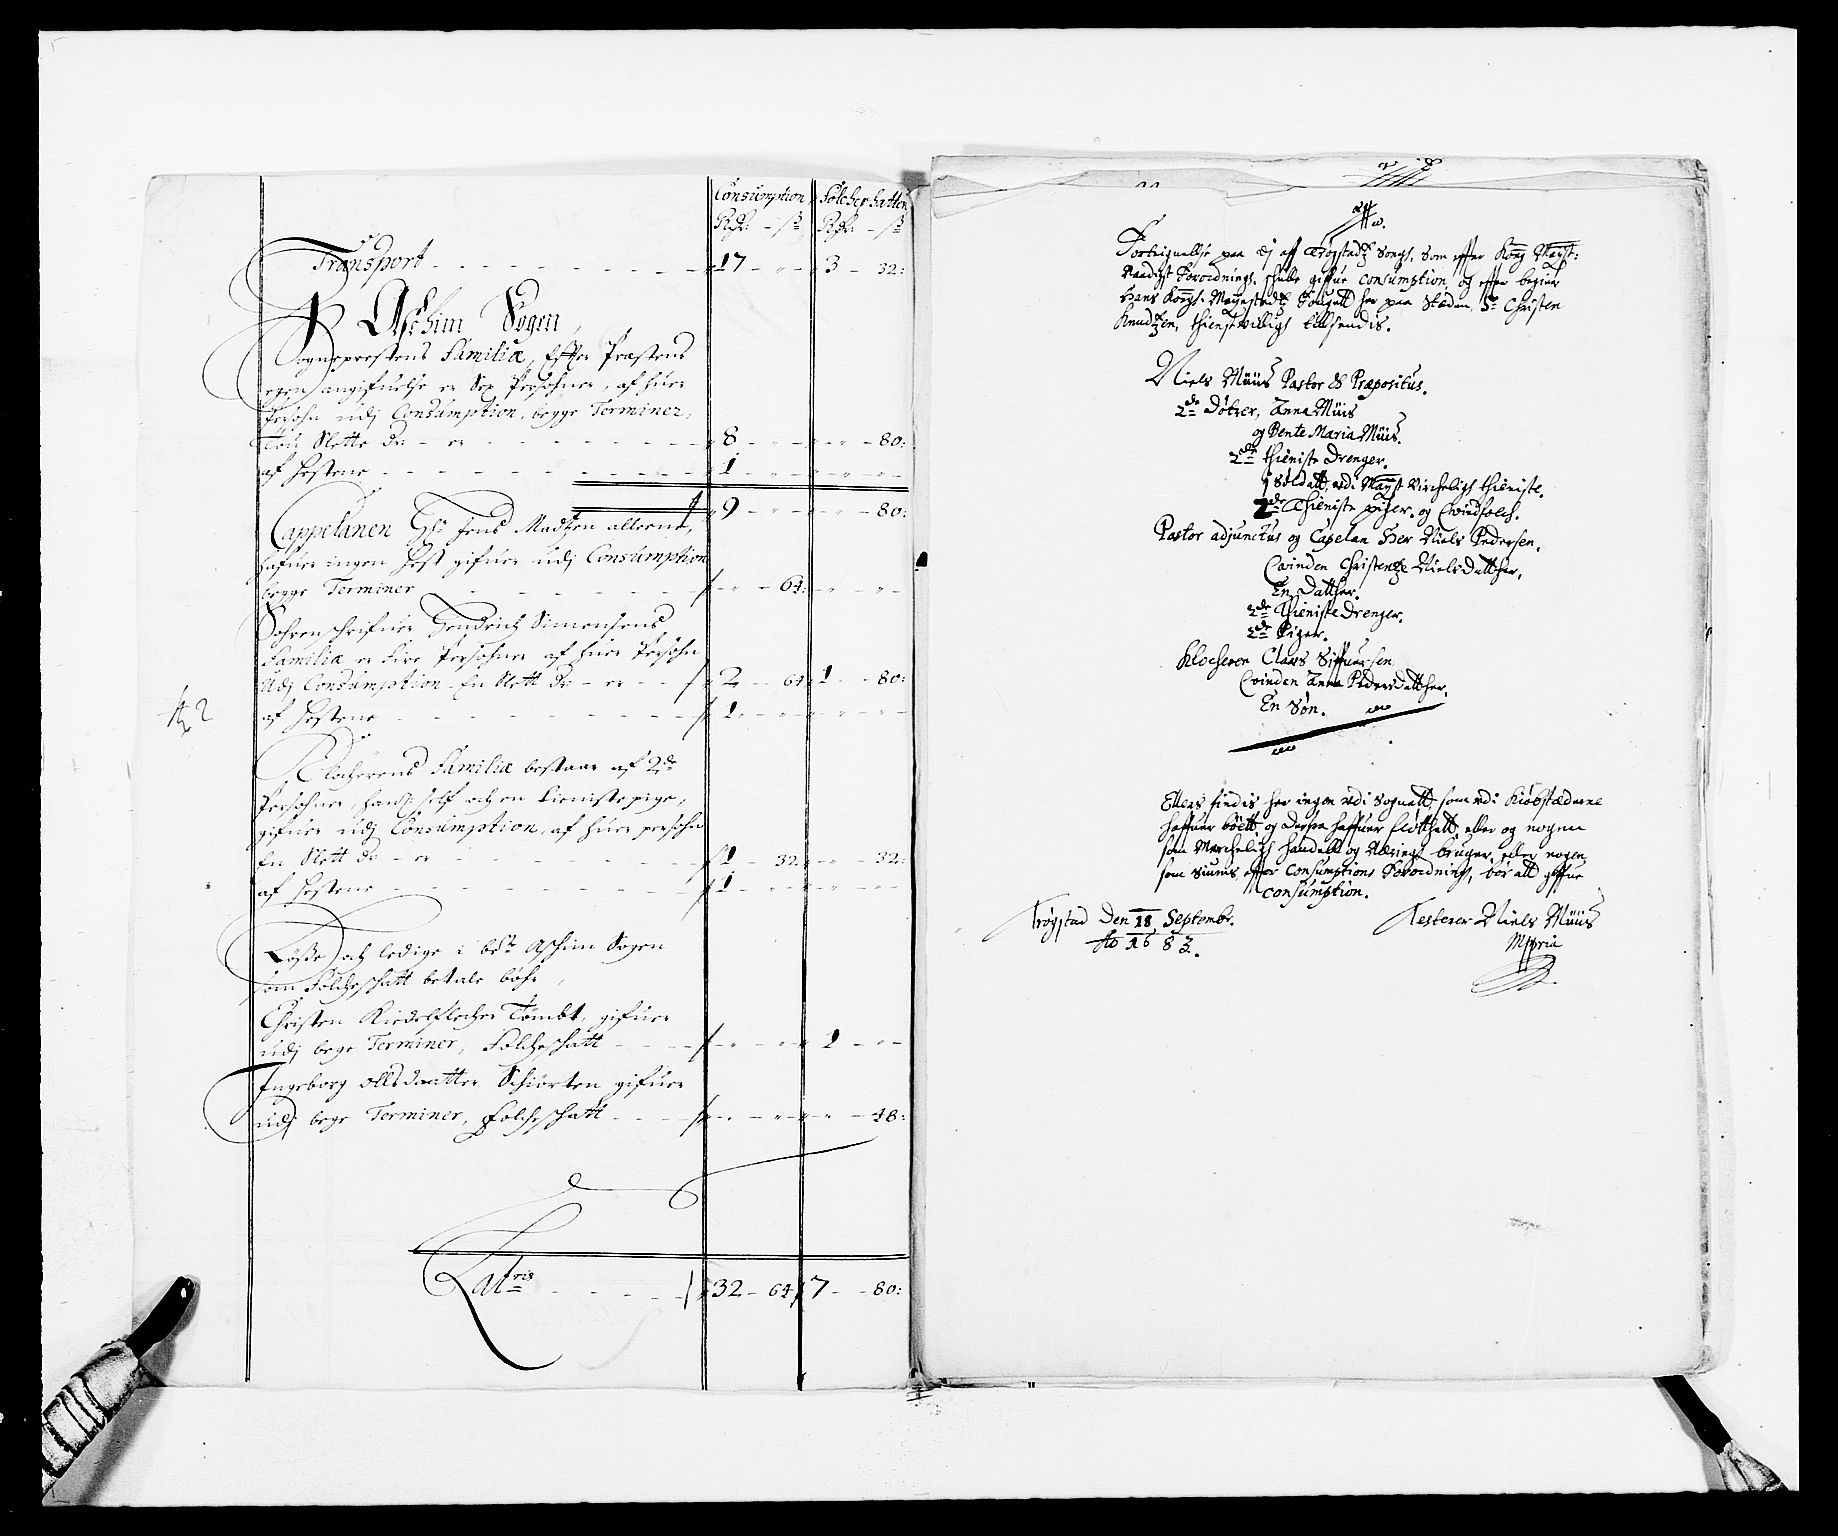 Consumption Folcheschatten
Rdr: - ß Rdr: - ß
Transport - - - 17 - „ - 3 - 32:
Aschim Sogen
Sogneprestens Familia, Effter Præstens
egen angifuelse er Sex Persohner, af huer
Persohn udj Consumption, begge Terminer,
Tou Slette dr - er - - - 8 - - - 80:
af Hestene - - - 1 - - -
9 - - - 80:
Cappelanen Hr Jens Madtzen allerne,
hafuer ingen Hest gifuer udj Consumption
begge Terminer - - - 64: - -
Sohrenschrifuer Hendrich Simensens
Familia er Fire Persohner af huer Persohn
Udj Consumption En Slett dr - er - - 2 - 64 1 - 80:
af Hestene - - - 1 - - -
Klocherens Familia bestaar af 2de
Persohner, hand self och en tieniste pige,
gifuer udj Consumption, af huer persohn
En Slett dr - er - - - 1 - 32 - - 32:
af Hestene - - - 1 - - -
Løsse och ledige i bete Aschim Sogen
som Folcheschatt betale bøhr,
Christen Riedelflecher Tombt, gifuer
udj bege Terminer, Folcheschatt - - - 1 - -
Ingeborg Ollsdaatter Schiorten gifuer
udj bege Terminer, Folcheschatt - - - 48:
Lateris - - - 32 - 64 7 - 80:
Forteignellse paa dj aff Trøgstadtz Songs, som effter Kong Mayst:
Naadigst Forordnings, skulle giffue consumption, og effter begier
Hans Kongs. Mayestedtz Fougett her paa Steden, Sr Christen
Knudtzen, thienstvilligs tillsendis.
Niels Müüs Pastor & Præpositus.
2de Døtrer, Anna Müüs
og Bente Maria Müüs.
2de thieniste Drenger.
1 Soldatt, udi Mayst Virchelighs thieniste.
2de Thieniste piger, og Quindfolch.
Pastor adjunctus og Capelan Her Niels Pedersen.
Quinden Christentze Nielsdatther.
En Datther.
2de Thieniste Drenger.
2de Piger.
Klocheren Claus Siffuersen
Quinden Anna Pedersdatther.
En Søn.
Ellers findis her ingen udi Sognett, som udi Kiøbstæderne
haffuer boett, og derfra haffuer flötthett, eller og nogen
som Merchelighs handell og Næring bruger, eller nogen
som siunis effter Consumptions Forordning, bør att giffue
consumption.
Trøgstad Den 18 Septembr.
Ao 1683.
Testerer Niels Müüs
Mppria